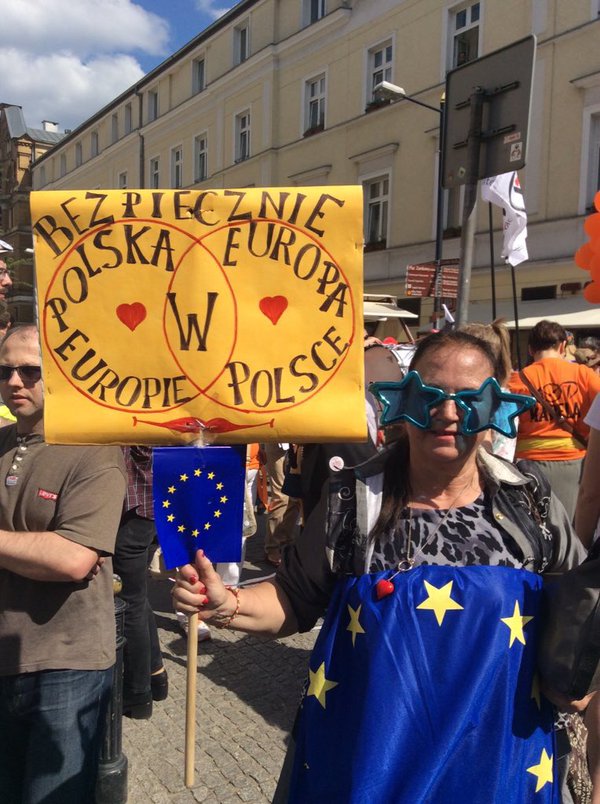 BEZPIECZNIE
POLSKA EUROPA
W
EUROPIE POLSCE